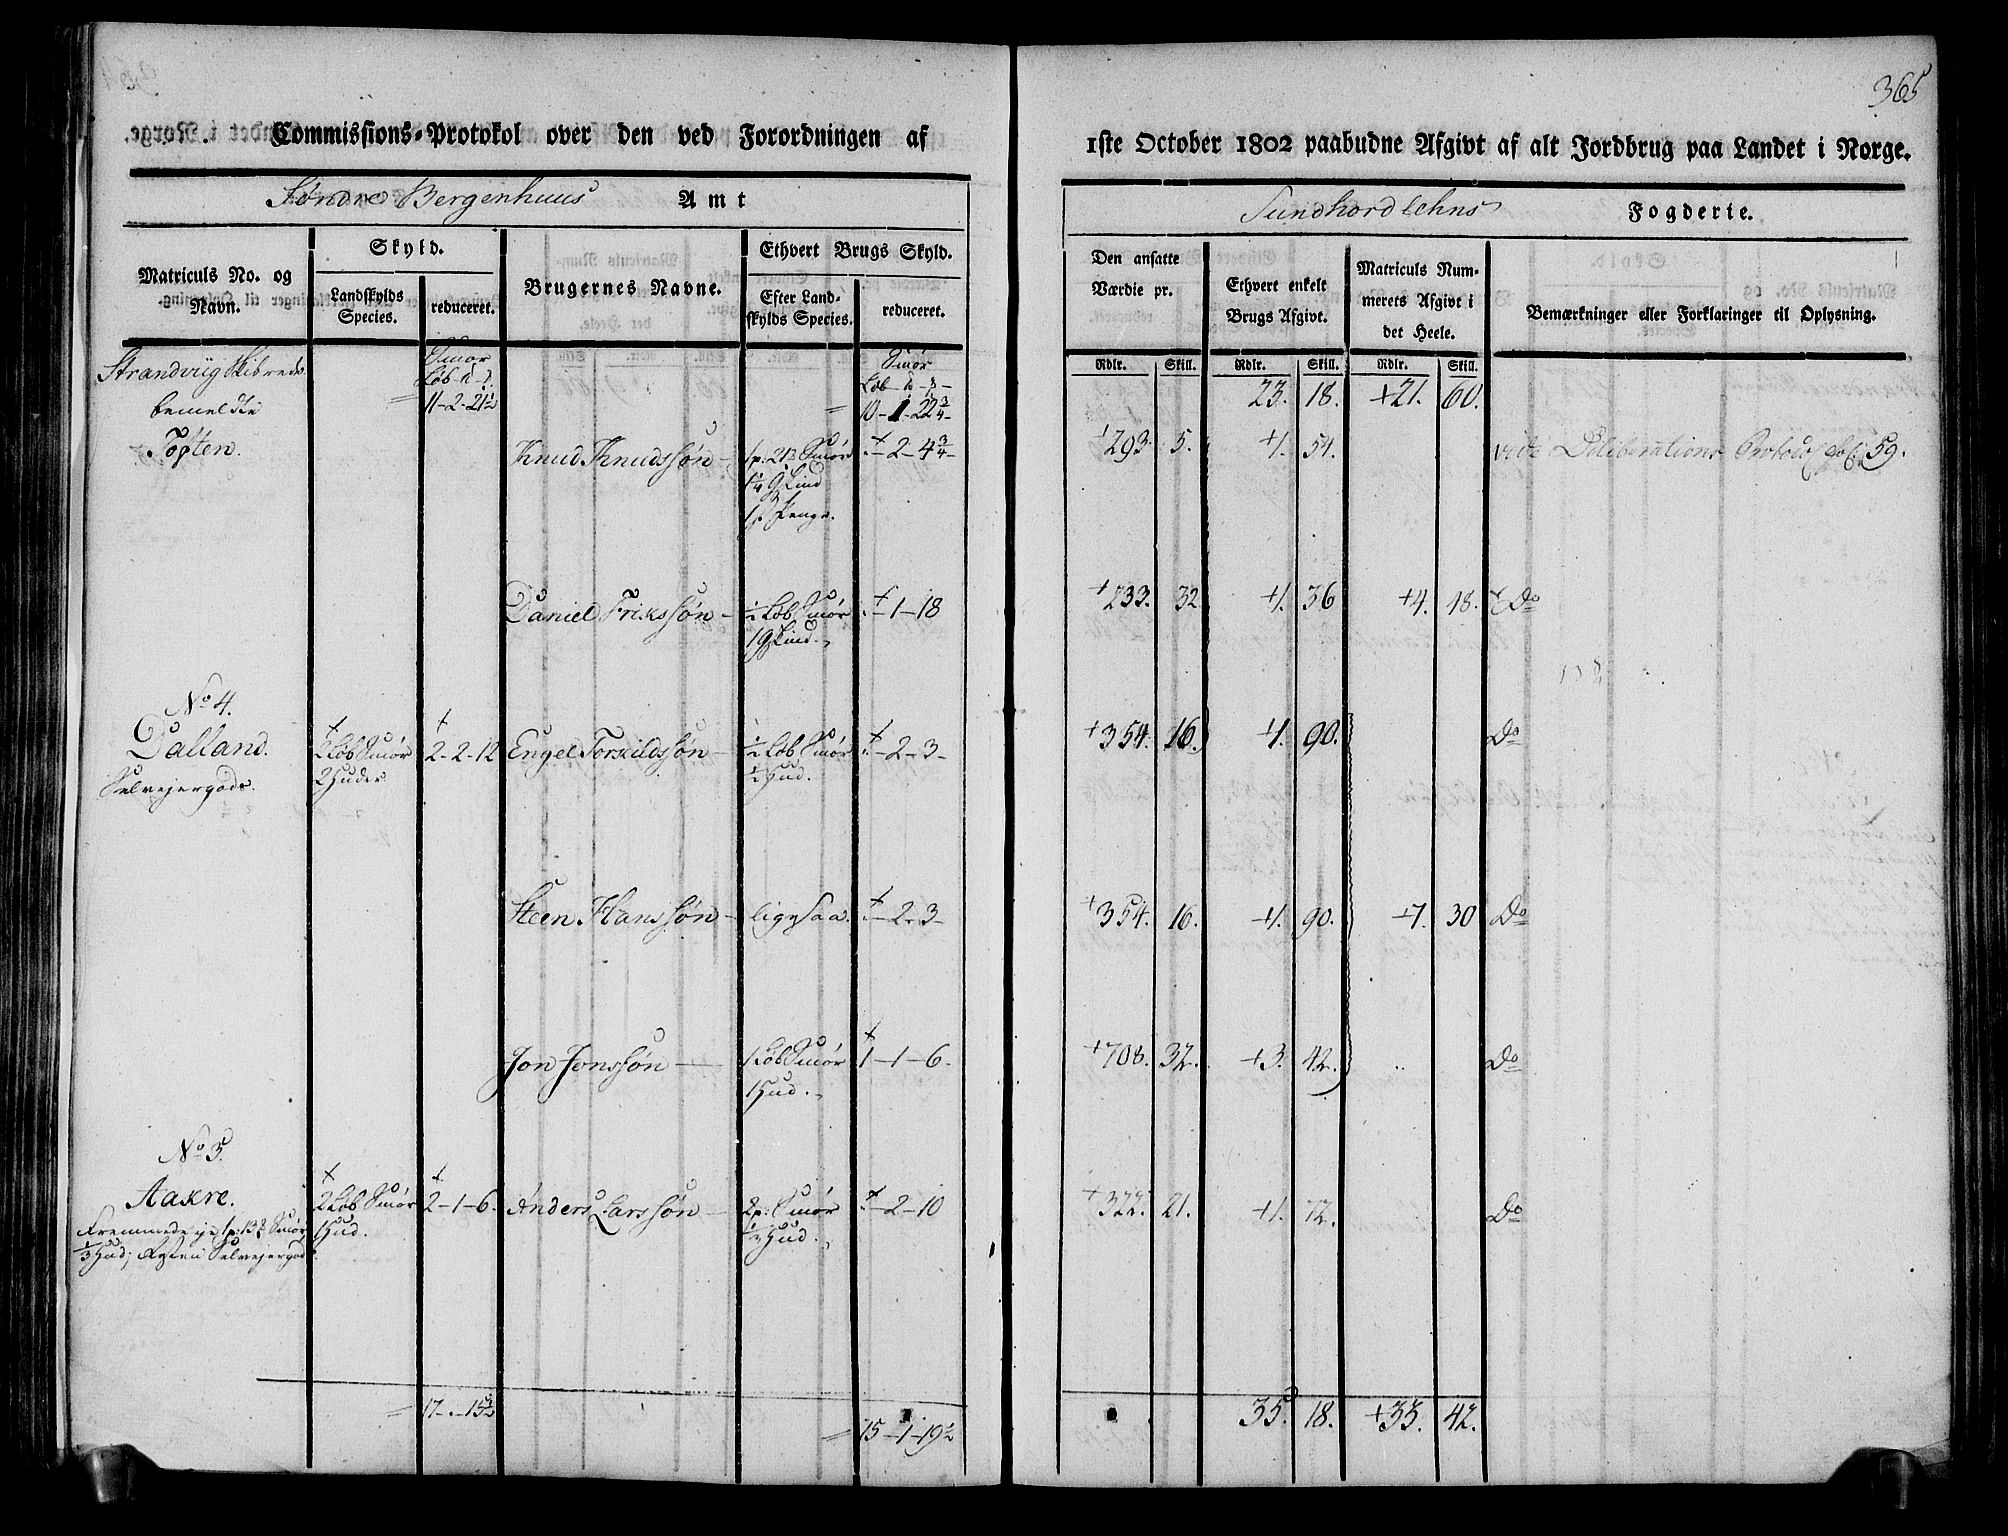 365
Commissions-Protokol over den ved Forordningen af
1ste October 1802 paabudne Afgivt af alt Jordbrug paa Landet i Norge.
Søndre Bergenhuus Amt
Sundhordlehns Fogderie.
Matriculs No. og Navn.
Skyld.
Landskylds Species.
reduceret.
Brugernes Navne.
Ethvert Brugs Skyld.
Efter Landskylds Species.
reduceret.
Den ansatte Værdie pr.
Ethvert enkelt Brugs Afgivt.
Matriculs Nummerets Afgivt i det Heele.
Bemærkninger eller Forklaringer til Oplysning.
Rdlr. Skill. Rdlr. Skill. Rdlr. Skill.
Strandviig Skibrede Smør Smør
Løb
bemeldte 11-2-21½ 10-1-22¾ 23. 18. +21. 60.
Tøften. Knud Knudssøn 1p: 21 Smør -2-4¾ 293. 5. +1. 54. vide Deliberations Protocol fol: 59.
Lind
Penge.
Daniel Frikssøn ½ Løb Smør -1-18 +233. 32. +1. 36 +4. 18. Do
Lind
No 4.
Dalland. 2 Løb Smør 2-2-12 Engel Torkildssøn ½ Løb Smør -2-3- +354. 16. +1. 90. Do
Selvejergods. 2 Huder ½ Hud.
Steen Hanssøn ligesaa. -2-3- +354. 16. +1. 90. +7. 30 Do
Jon Jonssøn 1 Løb Smør 1-1-6. +708. 32. +3. 42. Do
1 Hud.
No 5.
Aakre. 2 Løb Smør 2-1-6. Anders Larssøn 2p: Smør -2-10 +322. 21. +1. 72. Do
Fremmede eje 1p: 13 Smør 1 Hud. ⅓ Hud.
⅓ Hud; Resten Selvejergods.
17-.-15½ 15-1-19½ 35. 18. +33. 42.